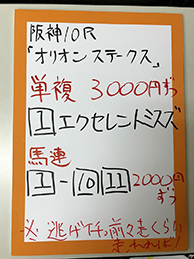 阪神10R
「オリオンステークス」
単複 3000円ずつ
1 エクセレントミスズ
馬連
1-10 11 2000円ずつ
※逃げイチ。前々走くらい
走れれば